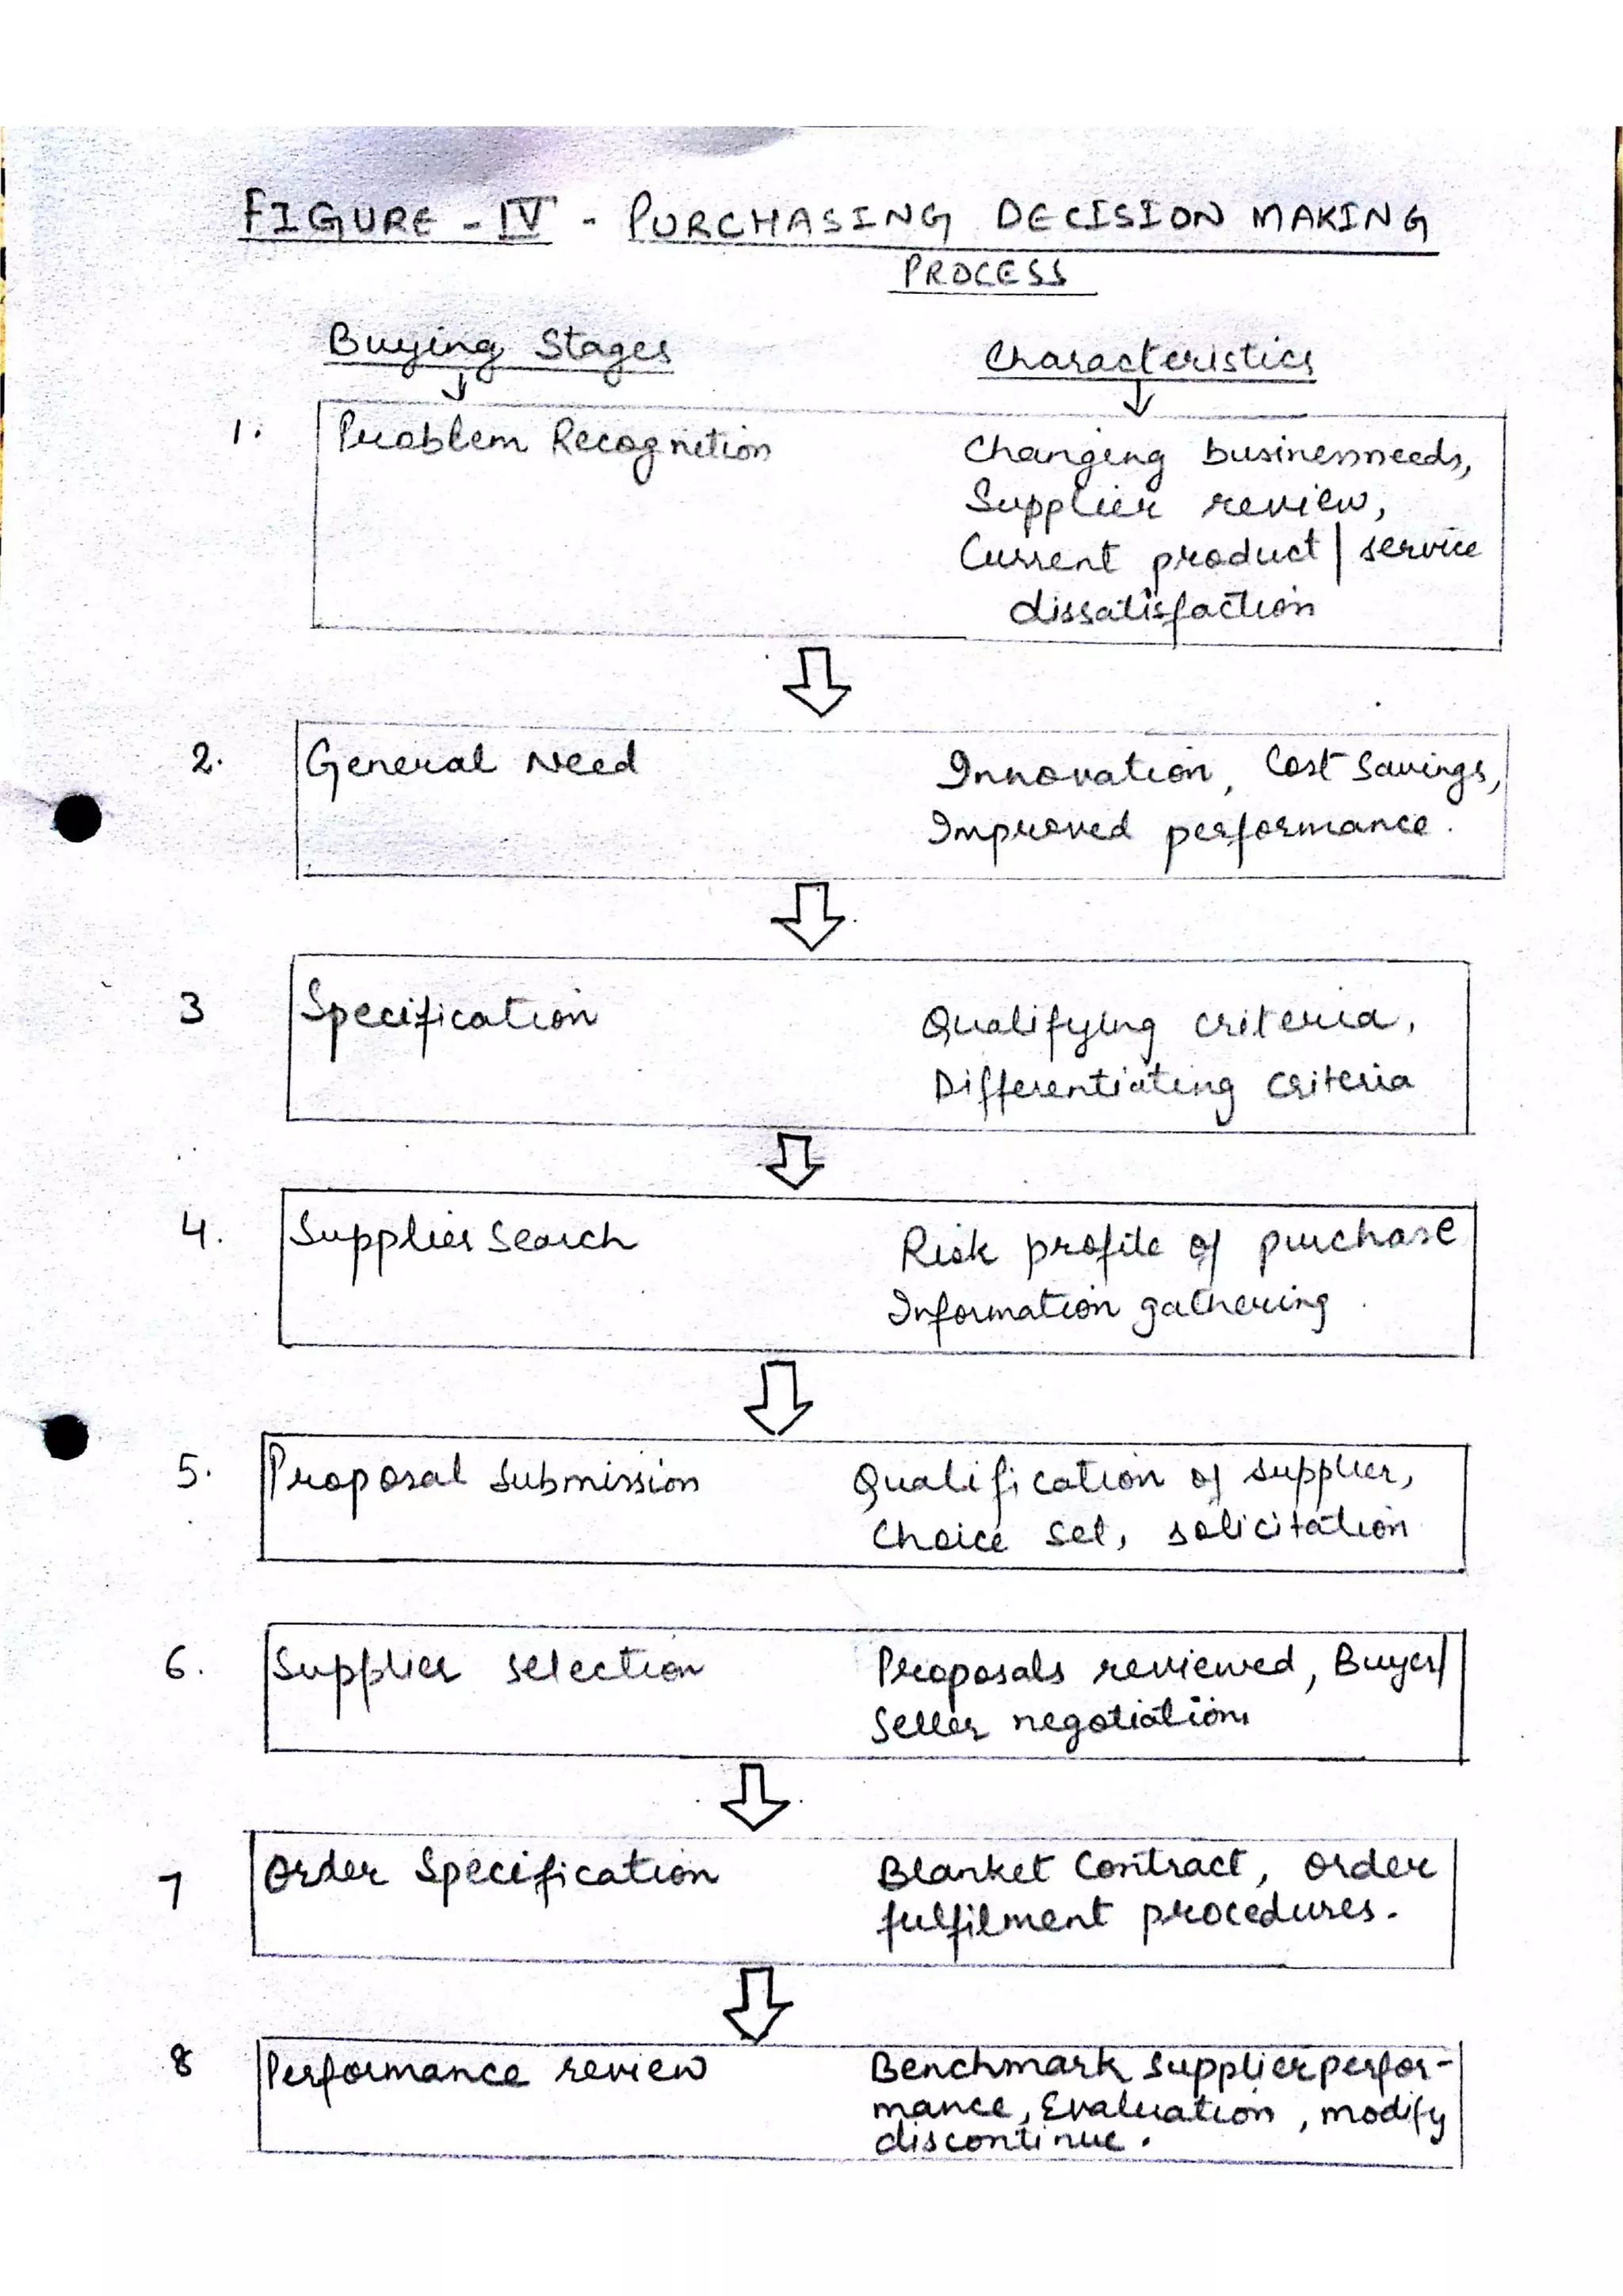 FIGURE - IV - PURCHASING DECISION MAKING
PROCESS
Buying Stages
Characteristics
1. Problem Recognition
Changing businessneeds,
Supplier review,
Current product / service
dissatisfaction
2. General Need
Innovation, Cost Savings,
Improved performance.
3 Specification
Qualifying criteria,
Differentiating criteria
4. Supplier Search
Risk profile of purchase
Information gathering
5. Proposal Submission
Qualification of supplier,
Choice set, solicitation
6. Supplier selection
Proposals reviewed, Buyer/
Seller negotiations
7 Order Specification
Blanket Contract, order
fulfilment procedures.
8 Performance review
Benchmark supplier perfor-
mance, Evaluation, modify
discontinue.